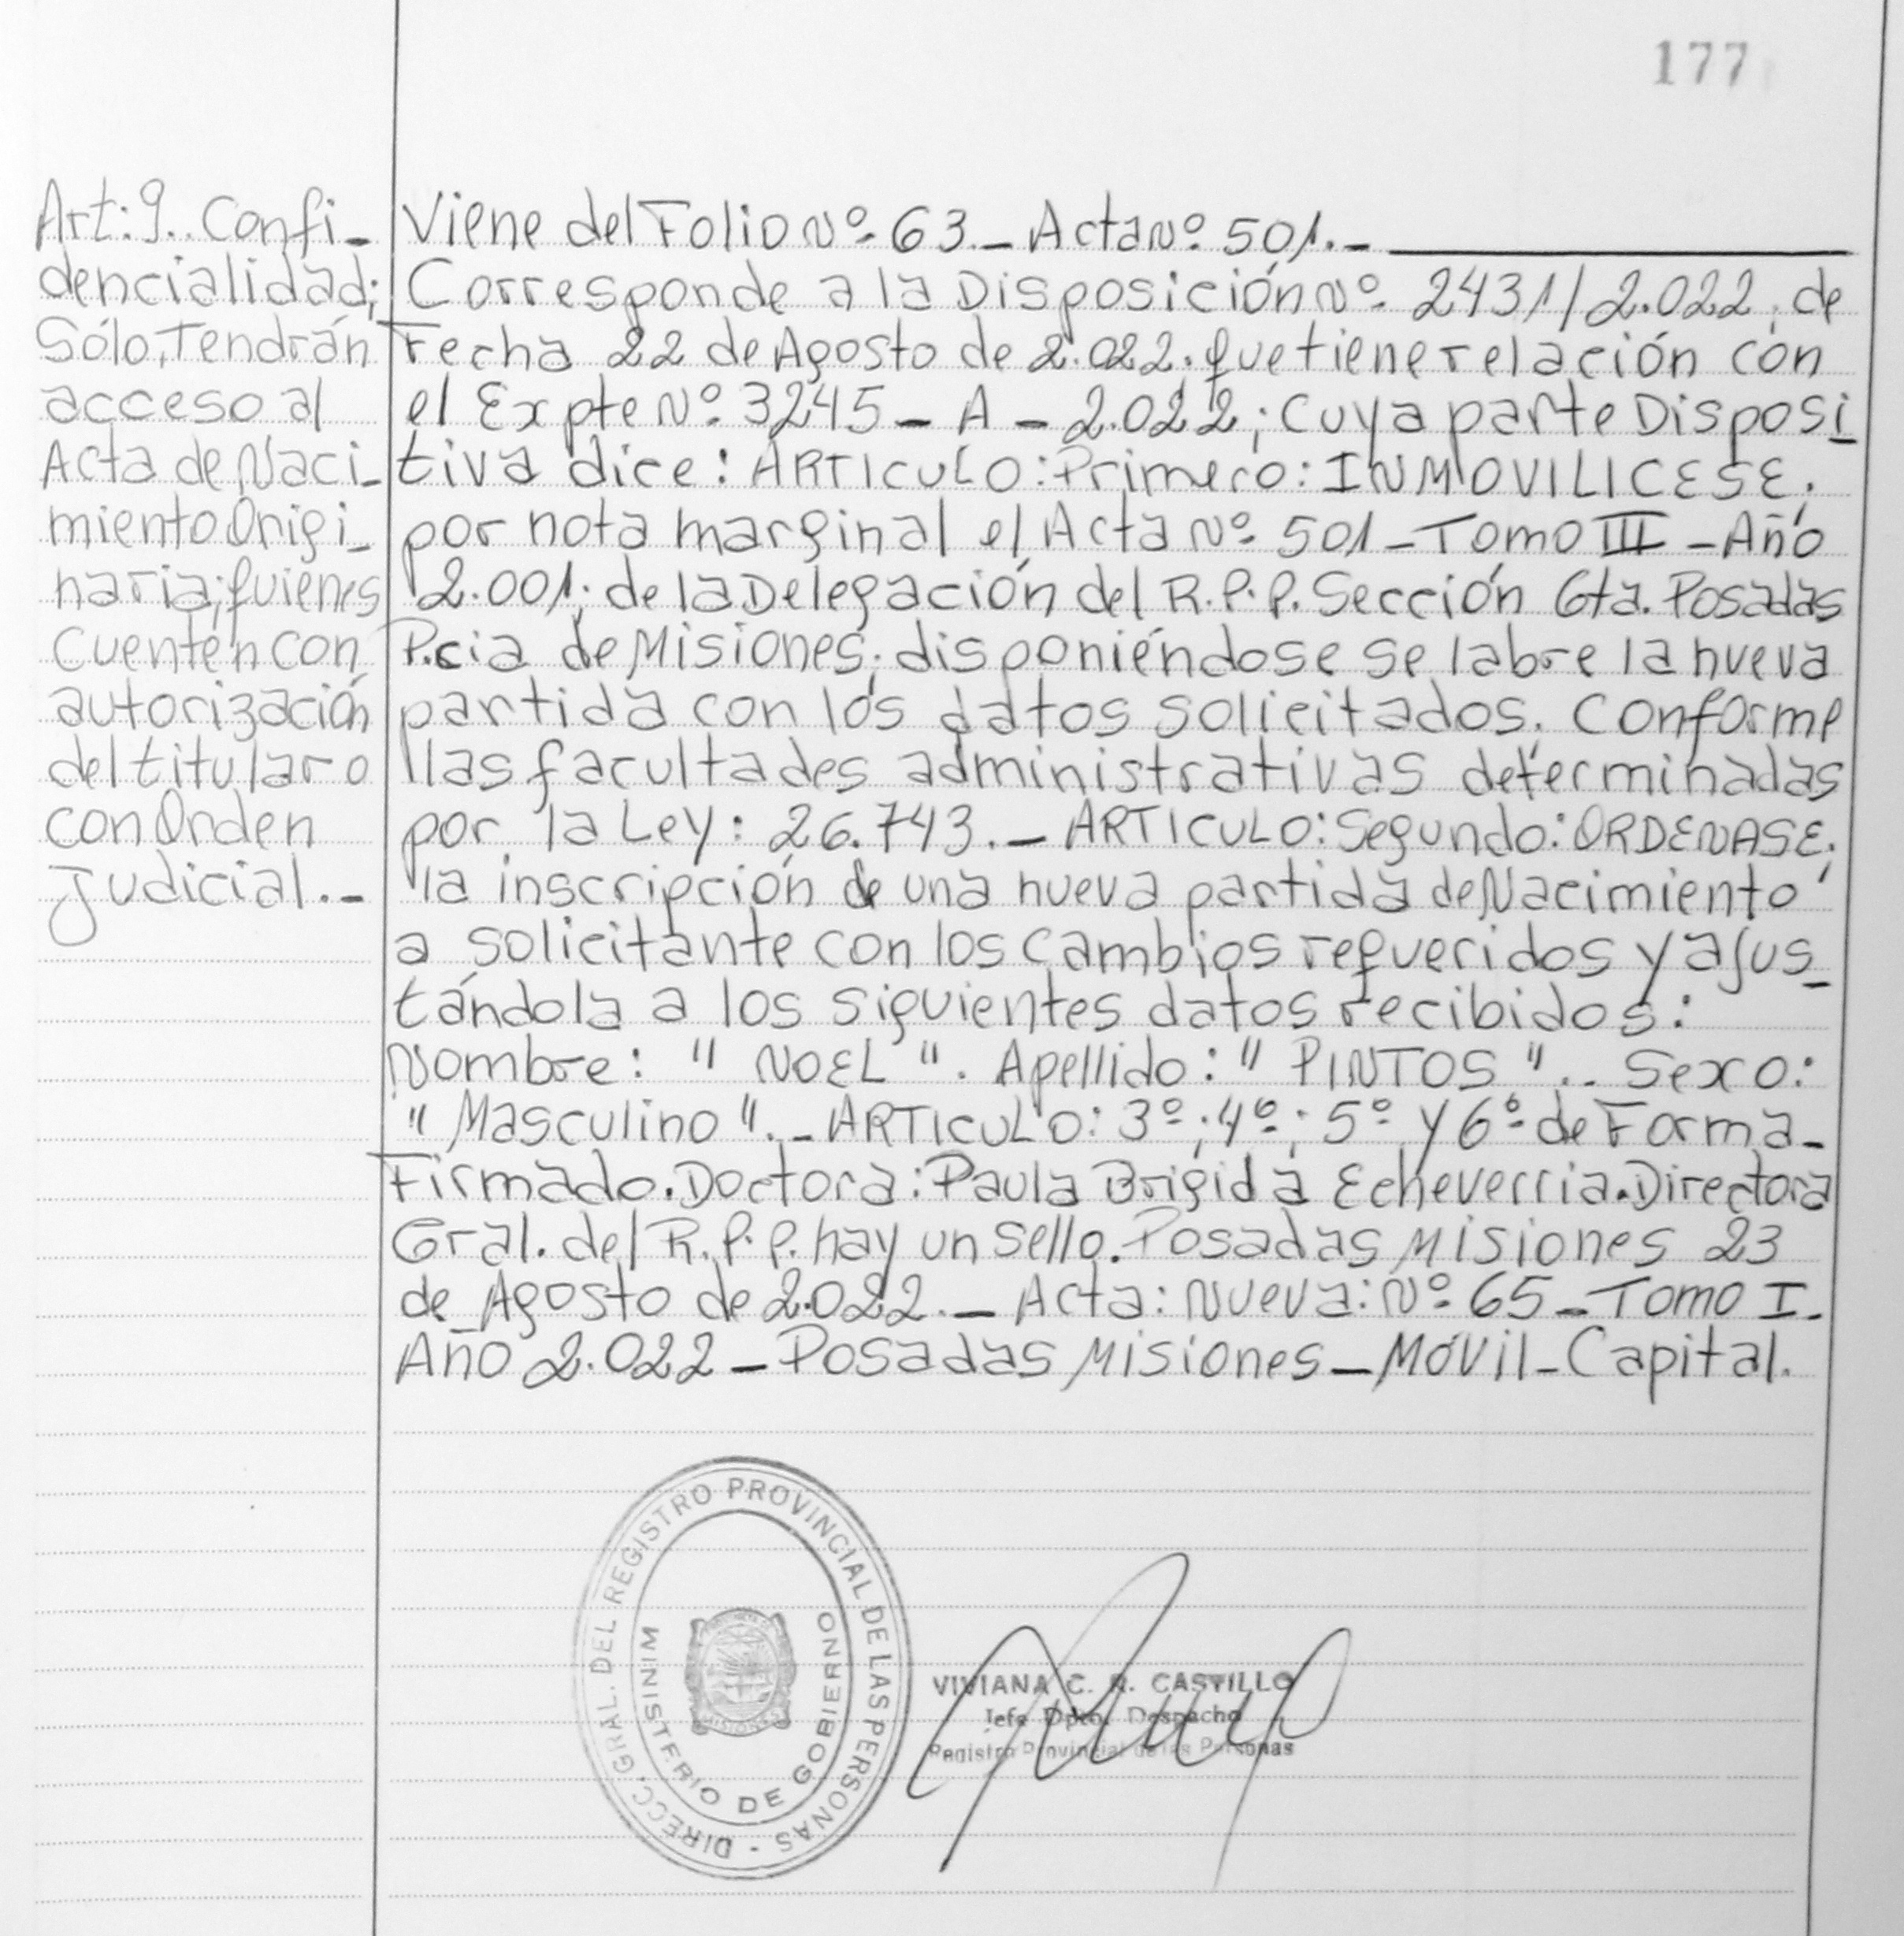 177
Art: 9.. Confi_
dencialidad;
Sólo, Tendrán
acceso al
Acta de Naci_
miento Origi_
naria; quienes
Cuenten con
autorización
del titular o
con Orden
Judicial._
Viene del Folio Nº 63_ Acta Nº 501._
Corresponde a la Disposición Nº 2431/2.022, de
Fecha 22 de Agosto de 2.022. que tiene relación con
el Expte Nº 3245_ A _ 2.022; Cuya parte Disposi_
tiva dice: ARTICULO: Primero: INMOVILICESE,
por nota marginal el Acta Nº 501_Tomo III _Año
2.001; de la Delegación del R.P.P. Sección 6ta. Posadas
P.cia de Misiones; disponiéndose se labre la nueva
partida con los datos solicitados. Conforme
las facultades administrativas determinadas
por la Ley: 26.743._ ARTICULO: Segundo: ORDENASE,
la inscripción de una nueva partida de Nacimiento
a solicitante con los cambios requeridos y ajus_
tándola a los siguientes datos recibidos:
Nombre: " NOEL ". Apellido: " PINTOS ".. Sexo:
" Masculino "._ ARTICULO: 3º; 4º; 5º y 6º de Forma_
Firmado. Doctora: Paula Brigida Echeverria. Directora
Gral. del R.P.P. hay un sello. Posadas Misiones 23
de Agosto de 2.022._ Acta: Nueva: Nº 65_Tomo I_
Año 2.022_Posadas Misiones_Móvil_Capital.
DIRECC. GRAL. DEL REGISTRO PROVINCIAL DE LAS PERSONAS -
MINISTERIO DE GOBIERNO
MISIONES
VIVIANA C. R. CASTILLO
Jefe Dpto. Despacho
Registro Provincial de las Personas